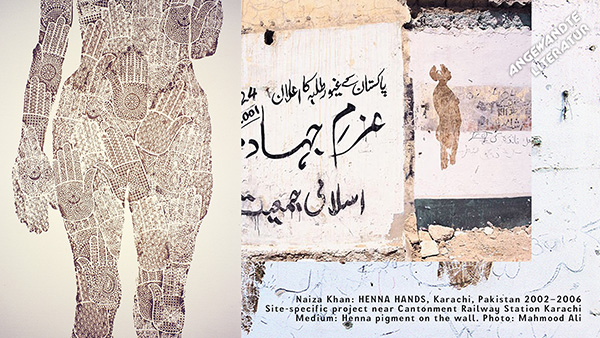 ANGEWANDTE
LITERATUR
پاکستان کے غیور طلبہ کا اعلان
24
001
عزمِ جہاد
اسلامی جمعیت
Naiza Khan: HENNA HANDS, Karachi, Pakistan 2002–2006
Site-specific project near Cantonment Railway Station Karachi
Medium: Henna pigment on the wall. Photo: Mahmood Ali